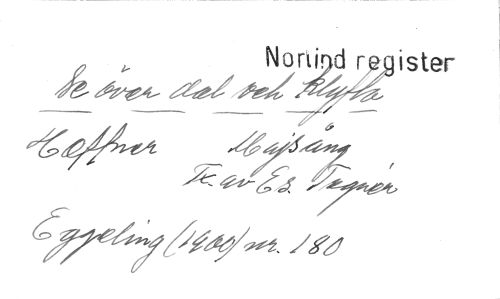 Norlind register
Se över dal och klyfta
Hæffner Majsång
Tx. av Es. Tegnér
Eggeling (1900) nr. 180